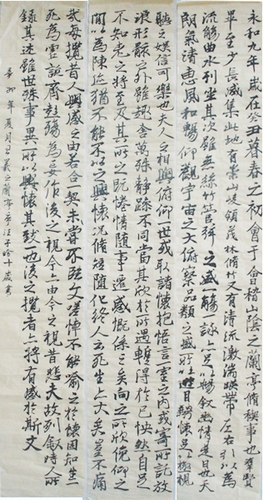 永和九年歲在癸丑暮春之初會于會稽山陰之蘭亭脩禊事也羣賢
畢至少長咸集此地有崇山峻領茂林脩竹又有清流激湍映帶左右引以為
流觴曲水列坐其次雖無絲竹管弦之盛一觴一詠亦足以暢敘幽情是日也天
朗氣清惠風和暢仰觀宇宙之大俯察品類之盛所以遊目騁懷足以極視
聽之娛信可樂也夫人之相與俯仰一世或取諸懷抱悟言一室之內或寄所託放
浪形骸之外雖趣舍萬殊靜躁不同當其欣於所遇暫得於己怏然自足
不知老之將至及其所之既惓情隨事遷感慨係之矣向之所欣俛仰之
間以為陳迹猶不能不以之興懷況脩短隨化終人云死生亦大矣豈不痛
哉每攬昔人興感之由若合一契未嘗不臨文嗟悼不能喻之於懷固知一生
死為虛誕齊彭殤為妄作後之視今亦由今之視昔悲夫故列敘時人
錄其所述雖世殊事異所以興懷其致一也後之攬者亦將有感於斯文
辛卯年夏月日 蘭亭序汪子 十歲書